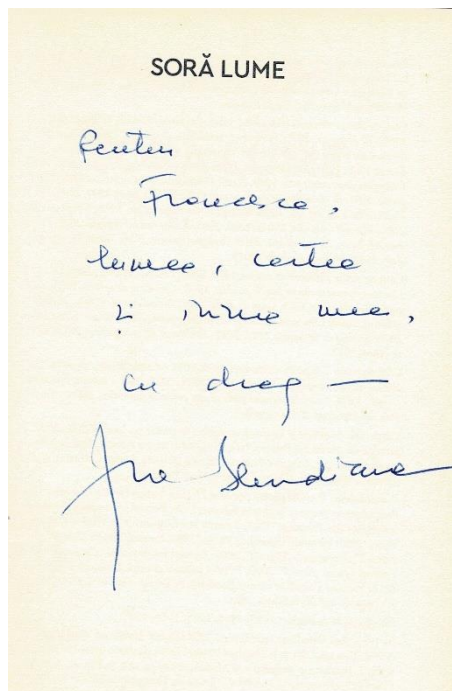 SORĂ LUME
Pentru
Francesca,
lumea, cartea
și inima mea,
cu drag —
Ana Blandiana